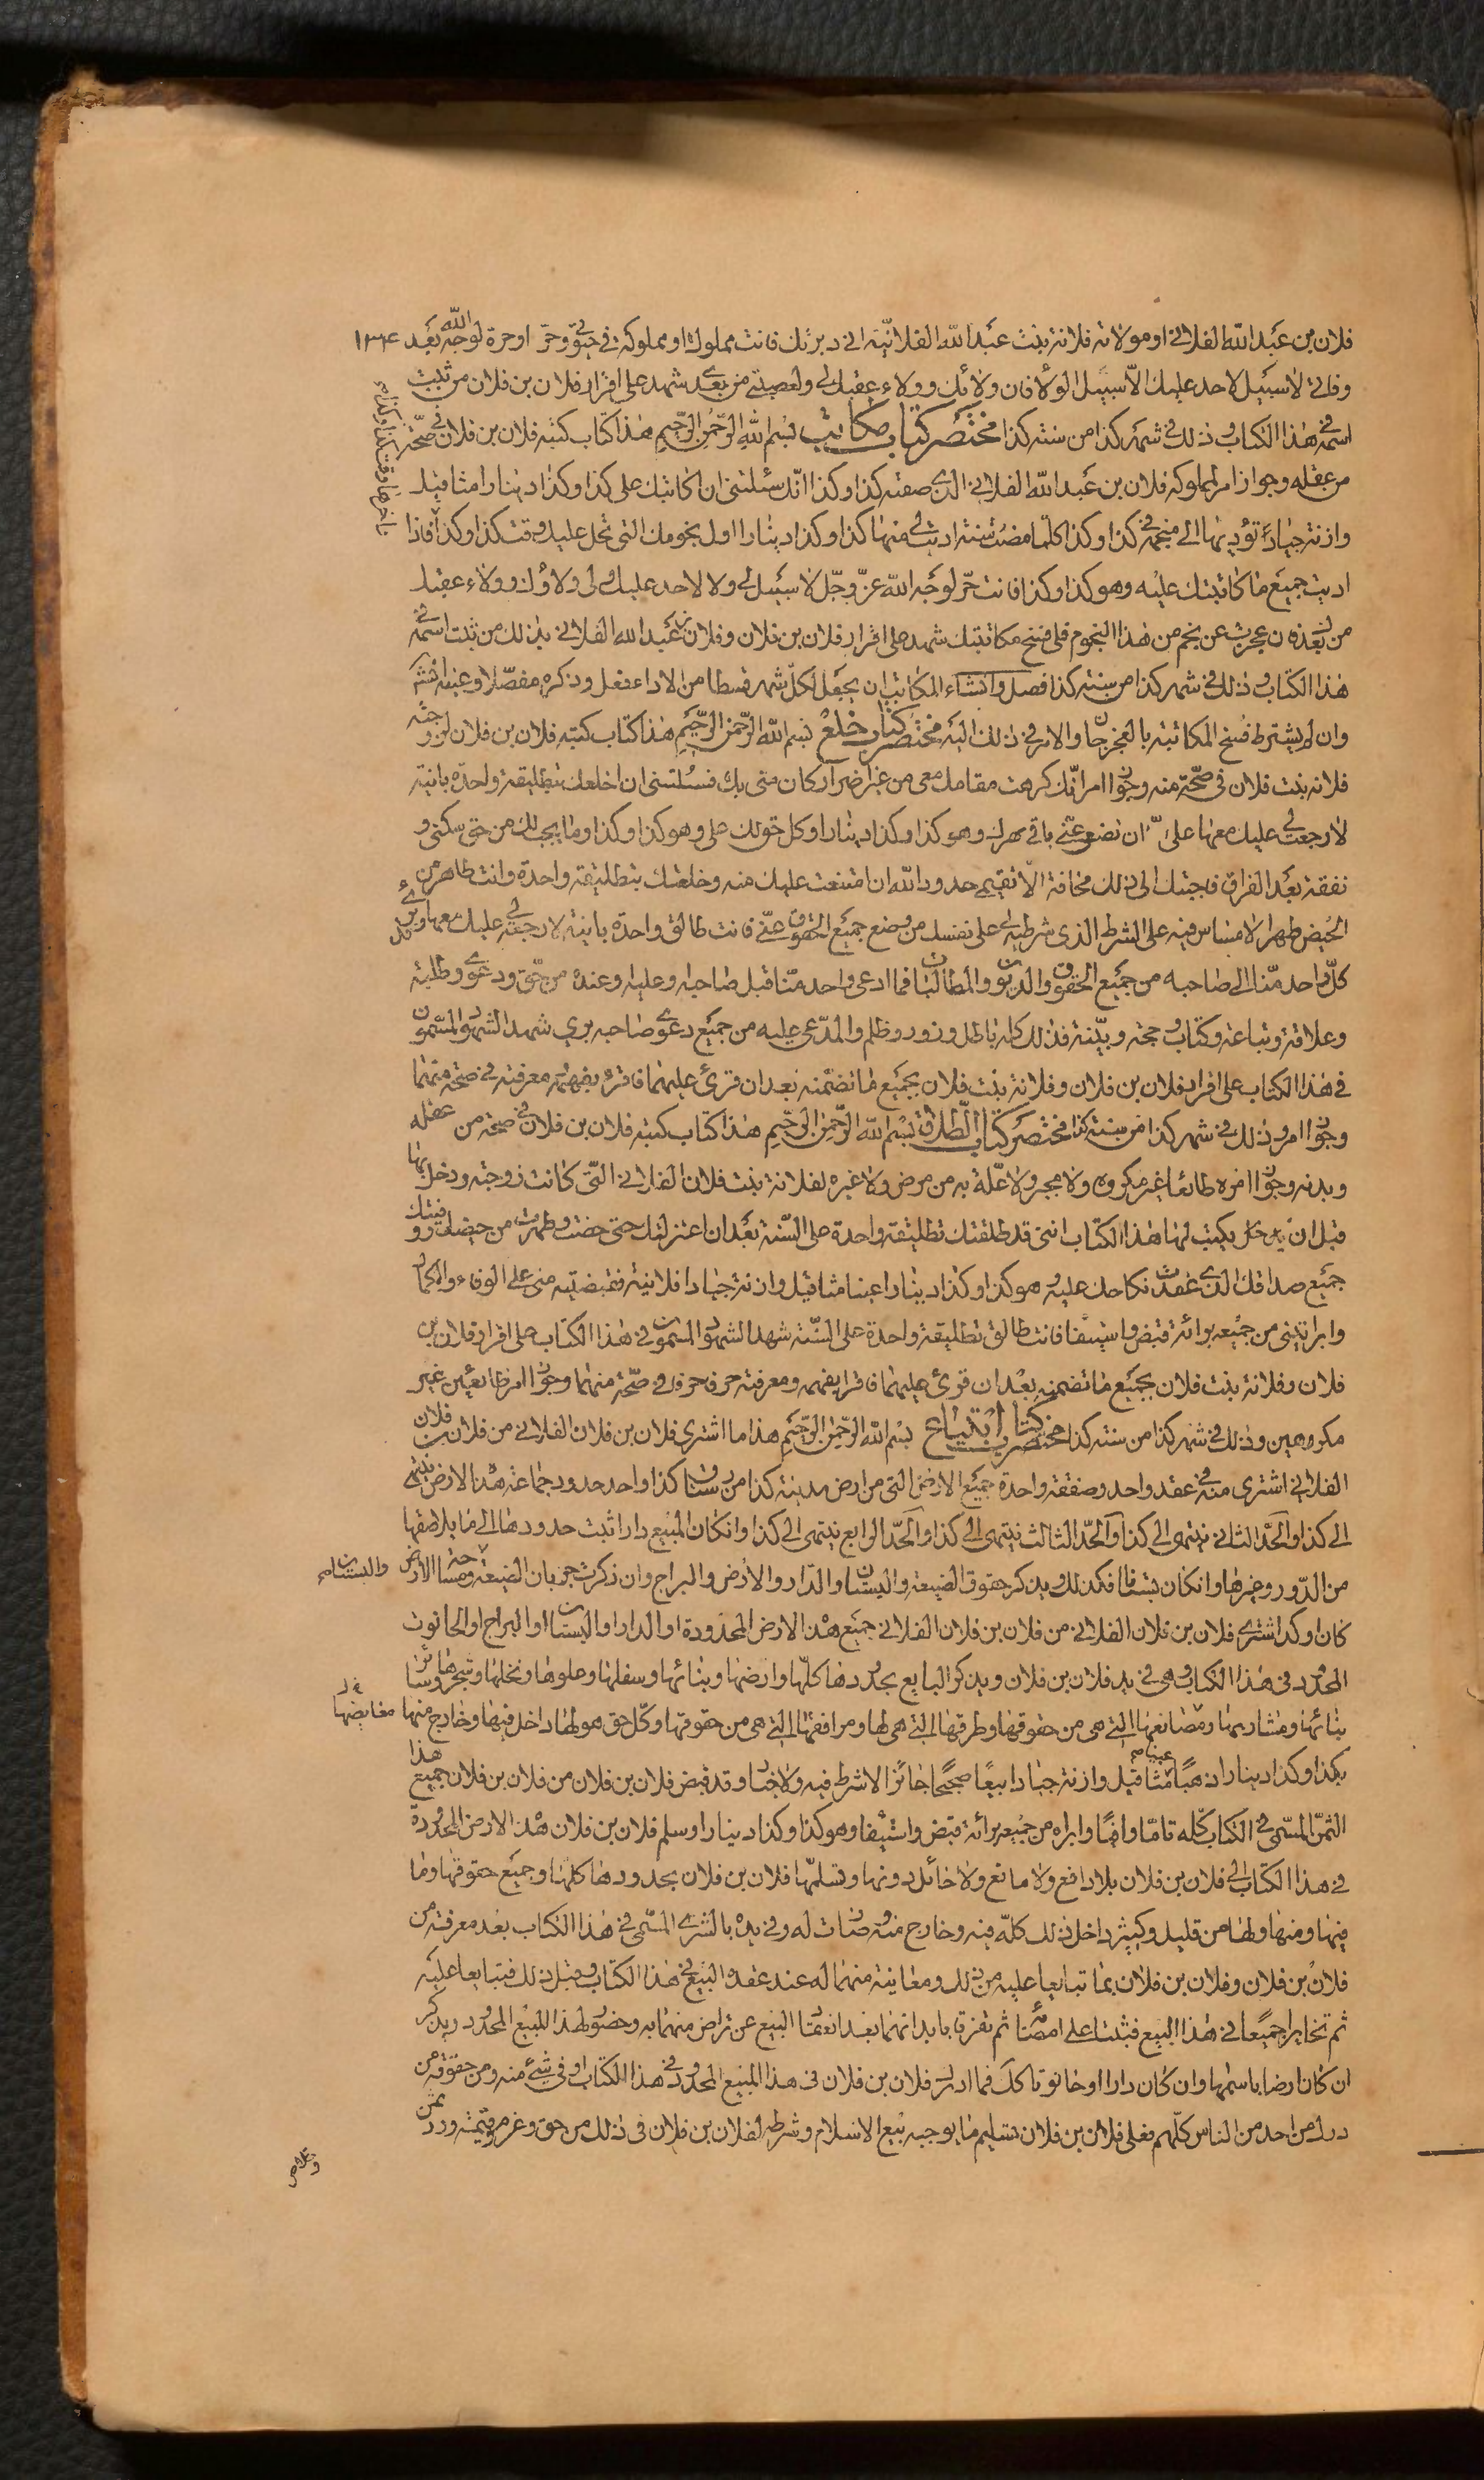 فلان بن عبد الله الفلاني او مولاته فلانة بنت عبد الله الفلانية اني دبرتك فانت مملوك او مملوكة في حيوتي وحر او حرة لوجه الله بعد ١٣٤
وفاتي لا سبيل لاحد عليك الا سبيل الولاء فان ولائك وولاء عقبك لي ولعصبتي من بعدي شهد على اقرار فلان بن فلان من ثبت
اسمه في هذا الكتاب وذلك في شهر كذا من سنة كذا مختصر كتاب مكاتب بسم الله الرحمن الرحيم هذا كتاب كتبه فلان بن فلان في صحة
من عقله وجواز امر لمملوكه فلان بن عبد الله الفلاني الذي صفته كذا وكذا انك سئلتني ان اكاتبك على كذا وكذا دينارا مثاقيل
وازنة جيادا تؤديها الي منجمة في كذا وكذا كلما مضت سنة اديت الي منها كذا وكذا دينارا اول نجومك التي تحل عليك وقت كذا وكذا فاذا
اديت جميع ما كاتبتك عليه وهو كذا وكذا فانت حر لوجه الله عز وجل لا سبيل لي ولا لاحد عليك ولي ولاؤك وولاء عقبك
من بعدك فان عجزت عن نجم من هذا النجوم فلي فسخ مكاتبتك شهد على اقرار فلان بن فلان وفلان بن عبد الله الفلاني بذلك من ثبت اسمه في
هذا الكتاب وذلك في شهر كذا من سنة كذا فصل وان شاء المكاتب ان يجعل لكل شهر قسطا من الاداء فعل وذكره مفصلا
وان لم يشترط فسخ المكاتبة بالعجز جاز والامر في ذلك اليه مختصر كتاب خلع بسم الله الرحمن الرحيم هذا كتاب كتبه فلان بن فلان لزوجته
فلانة بنت فلان في صحة منه وجواز امر انك كرهت مقامك معي من غير اضرار كان مني بك فسئلتني ان اخلعك بتطليقة واحدة باينة
لا رجعت لي عليك معها على ان تضعي عني باقي مهرك وهو كذا وكذا دينارا وكل حق لك علي وهو كذا وكذا وما يجب لك من حق سكنى و
نفقة بعد الفراق فاجبتك الى ذلك مخافة الا نقيم حدود الله ان امتنعت عليك منه وخلعتك بتطليقة واحدة وانت طاهر من
الحيض طهرا لا مساس فيه على الشرط الذي شرطته لي على نفسك من وضع جميع الحقوق عني فانت طالق واحدة باينة لا رجعة لي عليك معها
كل واحد منا الى صاحبه من جميع الحقوق والديون والمطالبات فما ادعى واحد منا قبل صاحبه وعليه وعنده من حق ودعوى وطلبة
وعلاقة وتباعة وكتاب وحجة وبينة فذلك كله باطل وزور وظلم والمدعى عليه من جميع دعوى صاحبه بري شهد الشهود المسمون
في هذا الكتاب على اقرار فلان بن فلان وفلانة بنت فلان بجميع ما تضمنه بعد ان قرئ عليهما فاقرا بفهمه ومعرفته في صحة منهما
وجواز امر وذلك في شهر كذا من سنة كذا مختصر كتاب الطلاق بسم الله الرحمن الرحيم هذا كتاب كتبه فلان بن فلان في صحة من عقله
وبدنه وجواز امره طائعا غير مكروه ولا مجبر ولا علة به من مرض ولا غيره لفلانة بنت فلان الفلاني التي كانت زوجته ودخل بها
قبل ان يكتب لها هذا الكتاب انني قد طلقتك تطليقة واحدة على السنة بعد ان اعتزلتك حتى حضت وطهرت من حيضك ووفيتك
جميع صداقك الذي عقدت نكاحك عليه وهو كذا وكذا دينارا عينا مثاقيل وازنة جيادا فقبضتيه مني على الوفاء والكمال
وابراتيني من جميعه برائة قبض واستيفا فانت طالق تطليقة واحدة على السنة شهد الشهود المسمون في هذا الكتاب على اقرار فلان بن
فلان وفلانة بنت فلان بجميع ما تضمنه بعد ان قرئ عليهما فاقرا بفهمه ومعرفته حرف حرف في صحة منهما وجواز امر طايعين غير
مكروهين وذلك في شهر كذا من سنة كذا مختصر كتاب ابتياع بسم الله الرحمن الرحيم هذا ما اشترى فلان بن فلان الفلاني من فلان بن فلان
الفلاني اشترى منه في عقد واحد وصفقة واحدة جميع الارض التي من ارض مدينة كذا من رستاق كذا واحد حدود جماعة هذه الارض ينتهي
الى كذا والحد الثاني ينتهي الى كذا والحد الثالث ينتهى الى كذا والحد الرابع ينتهى الى كذا وان كان المبيع دارا ثبت حدودها الى ما يلاصقها
من الدور وغيرها وان كان بستانا فكذلك ويذكر حقوق الضيعة والبستان والدار والارض والبراح وان ذكرت جربان الضيعة ومساحة الارض والبستان
كان اوكد اشترى فلان بن فلان الفلاني من فلان بن فلان الفلاني جميع هذه الارض المحدودة او الدار او البستان او البراح او الحانوت
المحدود في هذا الكتاب وهي في يد فلان بن فلان ويذكر البايع بحدودها كلها وارضها وبنائها وسفلها وعلوها ونخلها وشجرها وسائر
بنائها ومشاربها ومصانعها التي هي من حقوقها وطرقها التي هي لها ومرافقها التي هي من حقوقها وكل حق هو لها داخل فيها وخارج منها
بكذا وكذا دينارا ذهبا عينا مثاقيل وازنة جيادا بيعا صحيحا جائزا لا شرط فيه ولا خيار وقد قبض فلان بن فلان من فلان بن فلان جميع هذا
الثمن المسمى في الكتاب كله تاما وافيا وابراه من جميعه برائة قبض واستيفا وهو كذا وكذا دينارا وسلم فلان بن فلان هذه الارض المحدودة
في هذا الكتاب الى فلان بن فلان بلا دافع ولا مانع ولا حائل دونها وتسلمها فلان بن فلان بحدودها كلها وجميع حقوقها وما
فيها ومنها ولها من قليل وكثير داخل ذلك كله فيه وخارج منه وصارت له وفي يده بالشرى المسمى في هذا الكتاب بعد معرفة من
فلان بن فلان وفلان بن فلان بما تبايعا عليه من ذلك ومعاينة منهما له عند عقده البيع في هذا الكتاب وقبل ذلك فتبايعا عليه
ثم تخايرا جميعا في هذا البيع فثبتا على امضائه ثم تفرقا بابدانهما بعد انعقاد البيع عن تراض منهما به وحضور لهذا المبيع المحدود ويذكر
ان كان ارضا باسمها وان كان دارا او حانوتا كل فما ادرك فلان بن فلان في هذا المبيع المحدود في هذا الكتاب او في شئ منه ومن حقوقه من
درك من احد من الناس كلهم فعلى فلان بن فلان تسليم ما يوجبه بيع الاسلام وشرطه لفلان بن فلان في ذلك من حق وغرم وقيمة ورد ثمن
وخلاص